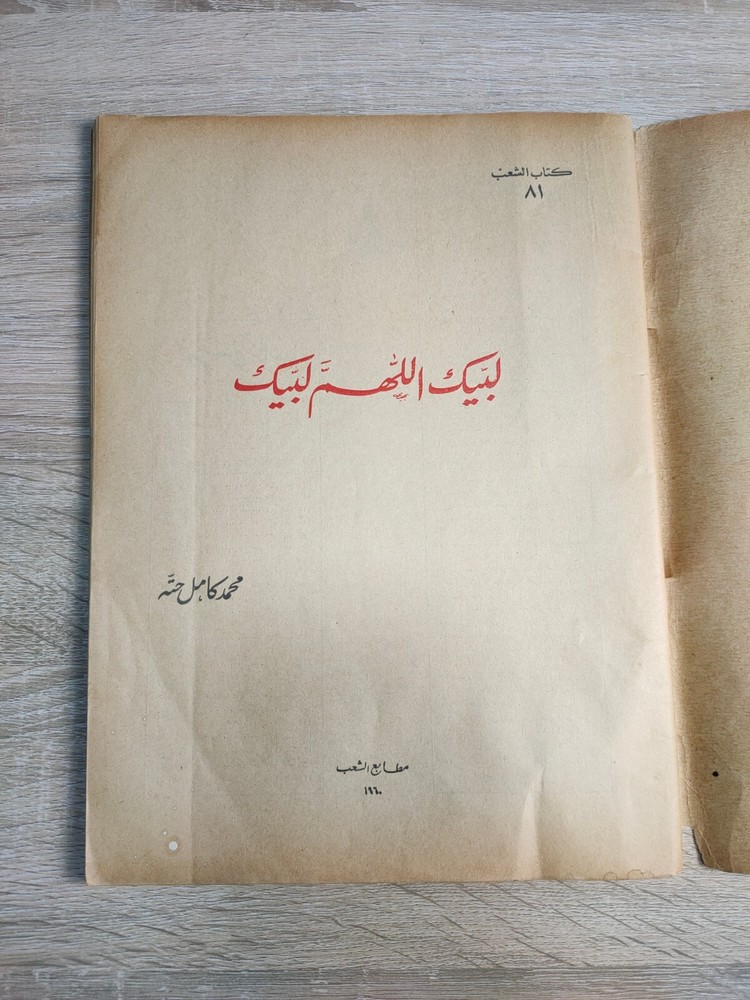 كتاب الشعب
٨١
لبّيك اللّٰهمَّ لبّيك
محمد كامل حتّه
مطابع الشعب
١٩٦٠